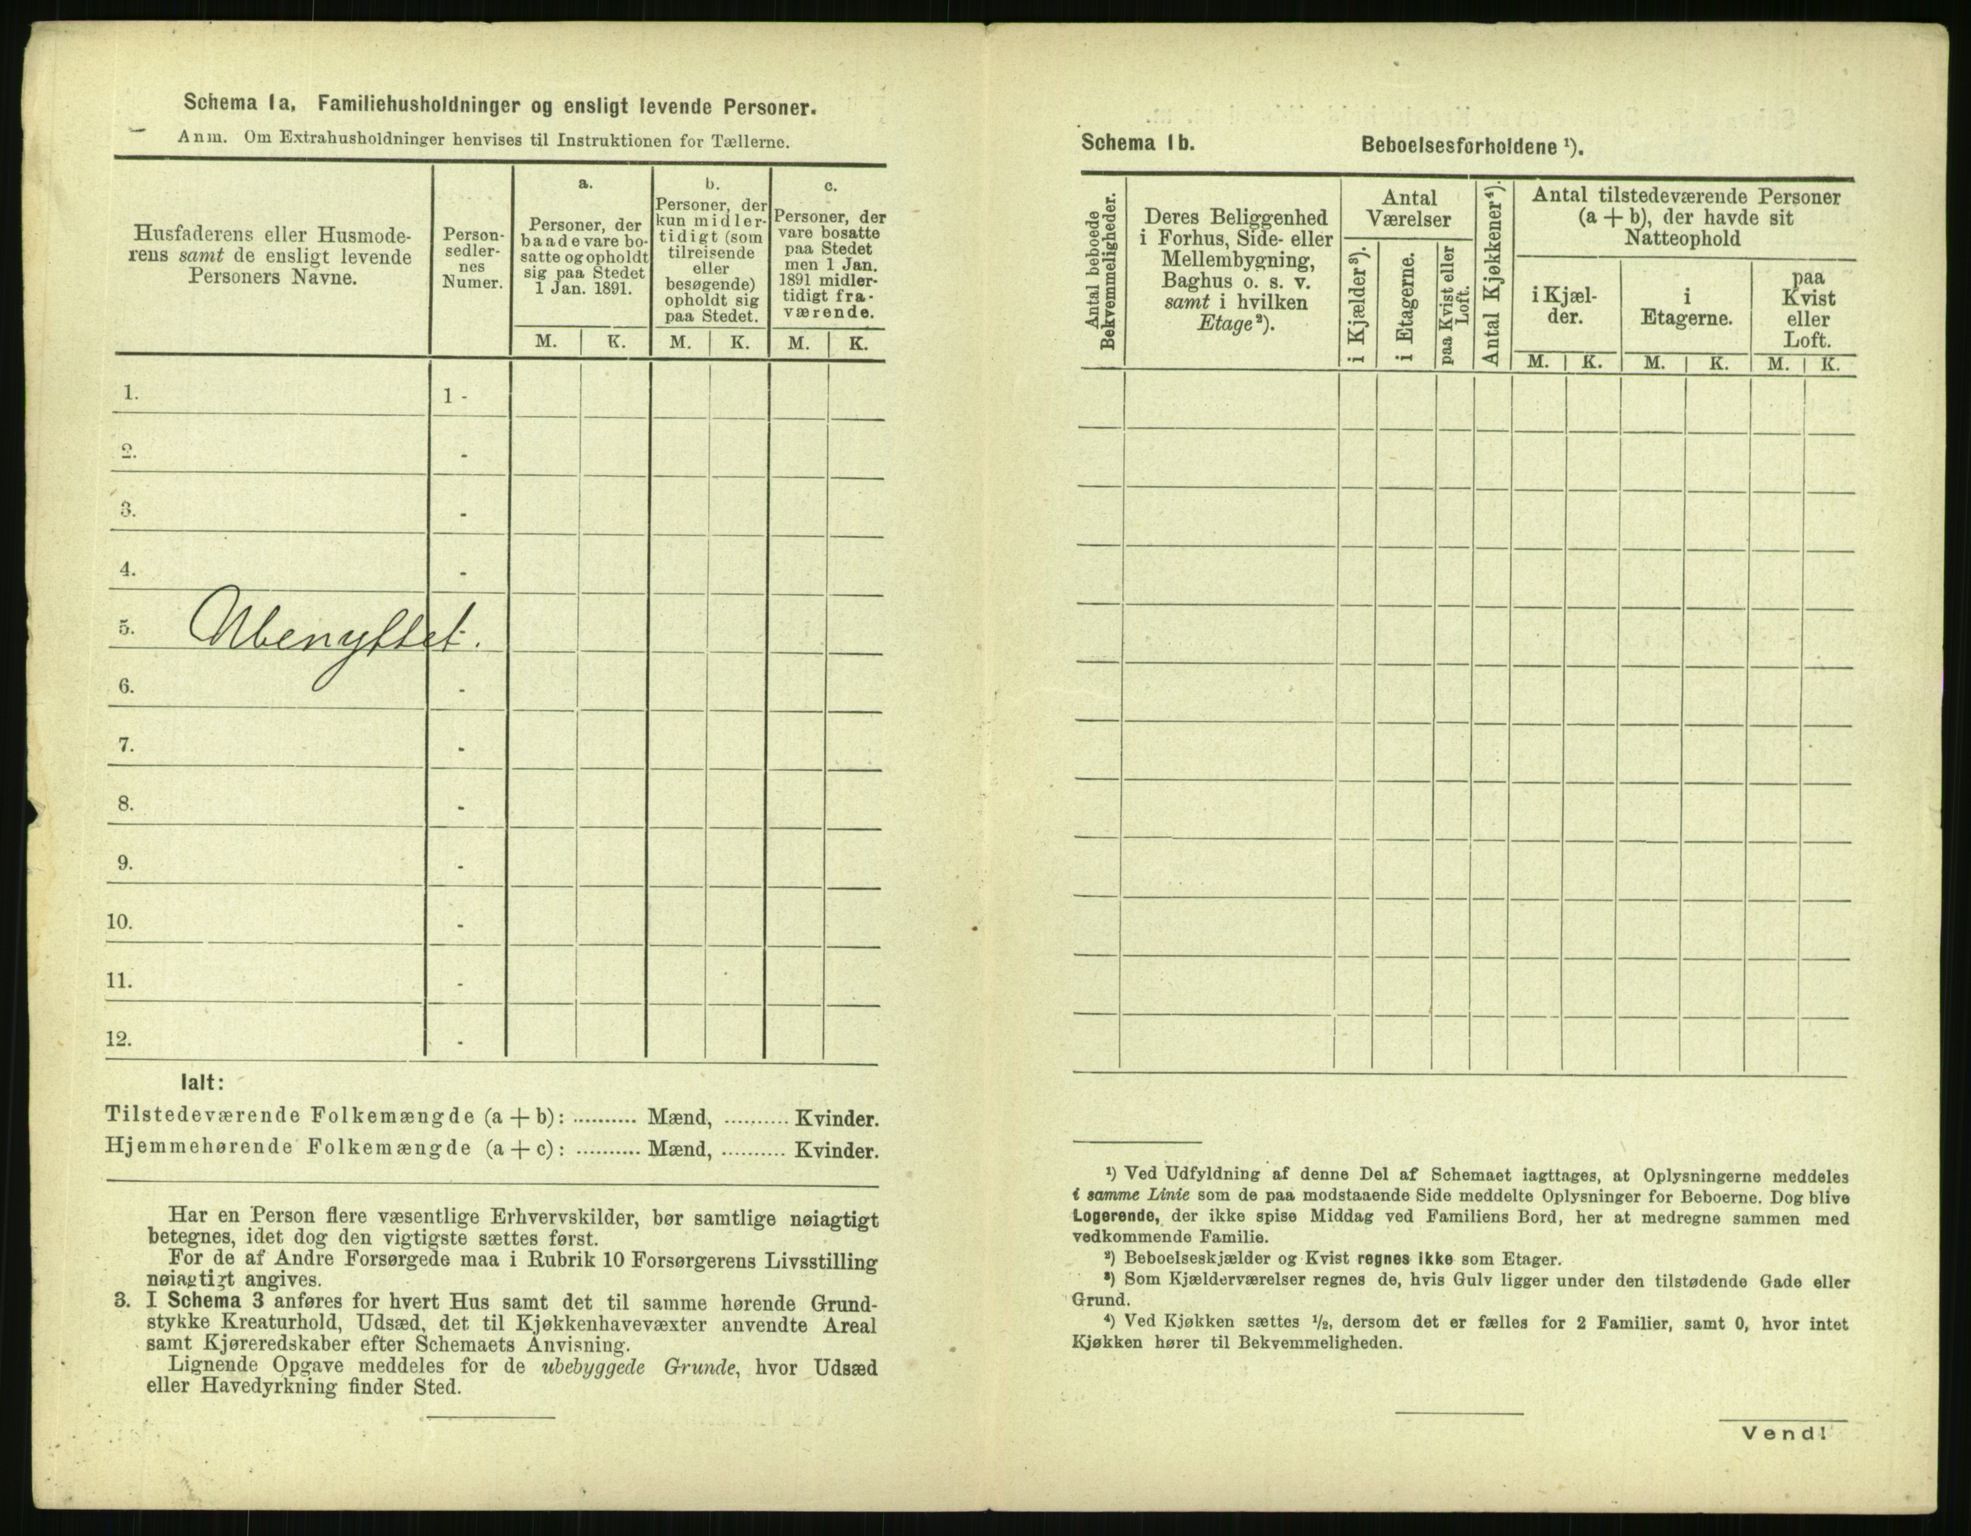 Schema 1a. Familiehusholdninger og ensligt levende Personer.
Anm. Om Extrahusholdninger henvises til Instruktionen for Tællerne.
Husfaderens eller Husmode-
rens samt de ensligt levende
Personers Navne.
Person-
sedler-
nes
Numer.
a.
Personer, der
baade vare bo-
satte og opholdt
sig paa Stedet
1 Jan. 1891.
b.
Personer, der
kun midler-
tidigt (som
tilreisende
eller
besøgende)
opholdt sig
paa Stedet.
c.
Personer, der
vare bosatte
paa Stedet
men 1 Jan.
1891 midler-
tidigt fra-
værende.
M. K. M. K. M. K.
1. 1 -
2. -
3. -
4. -
5. Ubenyttet.
6. -
7. -
8. -
9. -
10. -
11. -
12. -
Ialt:
Tilstedeværende Folkemængde (a + b): .......... Mænd, .......... Kvinder.
Hjemmehørende Folkemængde (a + c): .......... Mænd, .......... Kvinder.
Har en Person flere væsentlige Erhvervskilder, bør samtlige nøiagtigt
betegnes, idet dog den vigtigste sættes først.
For de af Andre Forsørgede maa i Rubrik 10 Forsørgerens Livsstilling
nøiagtigt angives.
3. I Schema 3 anføres for hvert Hus samt det til samme hørende Grund-
stykke Kreaturhold, Udsæd, det til Kjøkkenhavevæxter anvendte Areal
samt Kjøreredskaber efter Schemaets Anvisning.
Lignende Opgave meddeles for de ubebyggede Grunde, hvor Udsæd
eller Havedyrkning finder Sted.
Schema 1b. Beboelsesforholdene ¹).
Antal beboede
Bekvemmeligheder.
Deres Beliggenhed
i Forhus, Side- eller
Mellembygning,
Baghus o. s. v.
samt i hvilken
Etage²).
Antal
Værelser
i Kjælder³).
i Etagerne.
paa Kvist eller
Loft.
Antal Kjøkkener⁴).
Antal tilstedeværende Personer
(a + b), der havde sit
Natteophold
i Kjæl-
der.
i
Etagerne.
paa
Kvist
eller
Loft.
M. K. M. K. M. K.
¹) Ved Udfyldning af denne Del af Schemaet iagttages, at Oplysningerne meddeles
i samme Linie som de paa modstaaende Side meddelte Oplysninger for Beboerne. Dog blive
Logerende, der ikke spise Middag ved Familiens Bord, her at medregne sammen med
vedkommende Familie.
²) Beboelseskjælder og Kvist regnes ikke som Etager.
³) Som Kjælderværelser regnes de, hvis Gulv ligger under den tilstødende Gade eller
Grund.
⁴) Ved Kjøkken sættes ½, dersom det er fælles for 2 Familier, samt 0, hvor intet
Kjøkken hører til Bekvemmeligheden.
Vend!